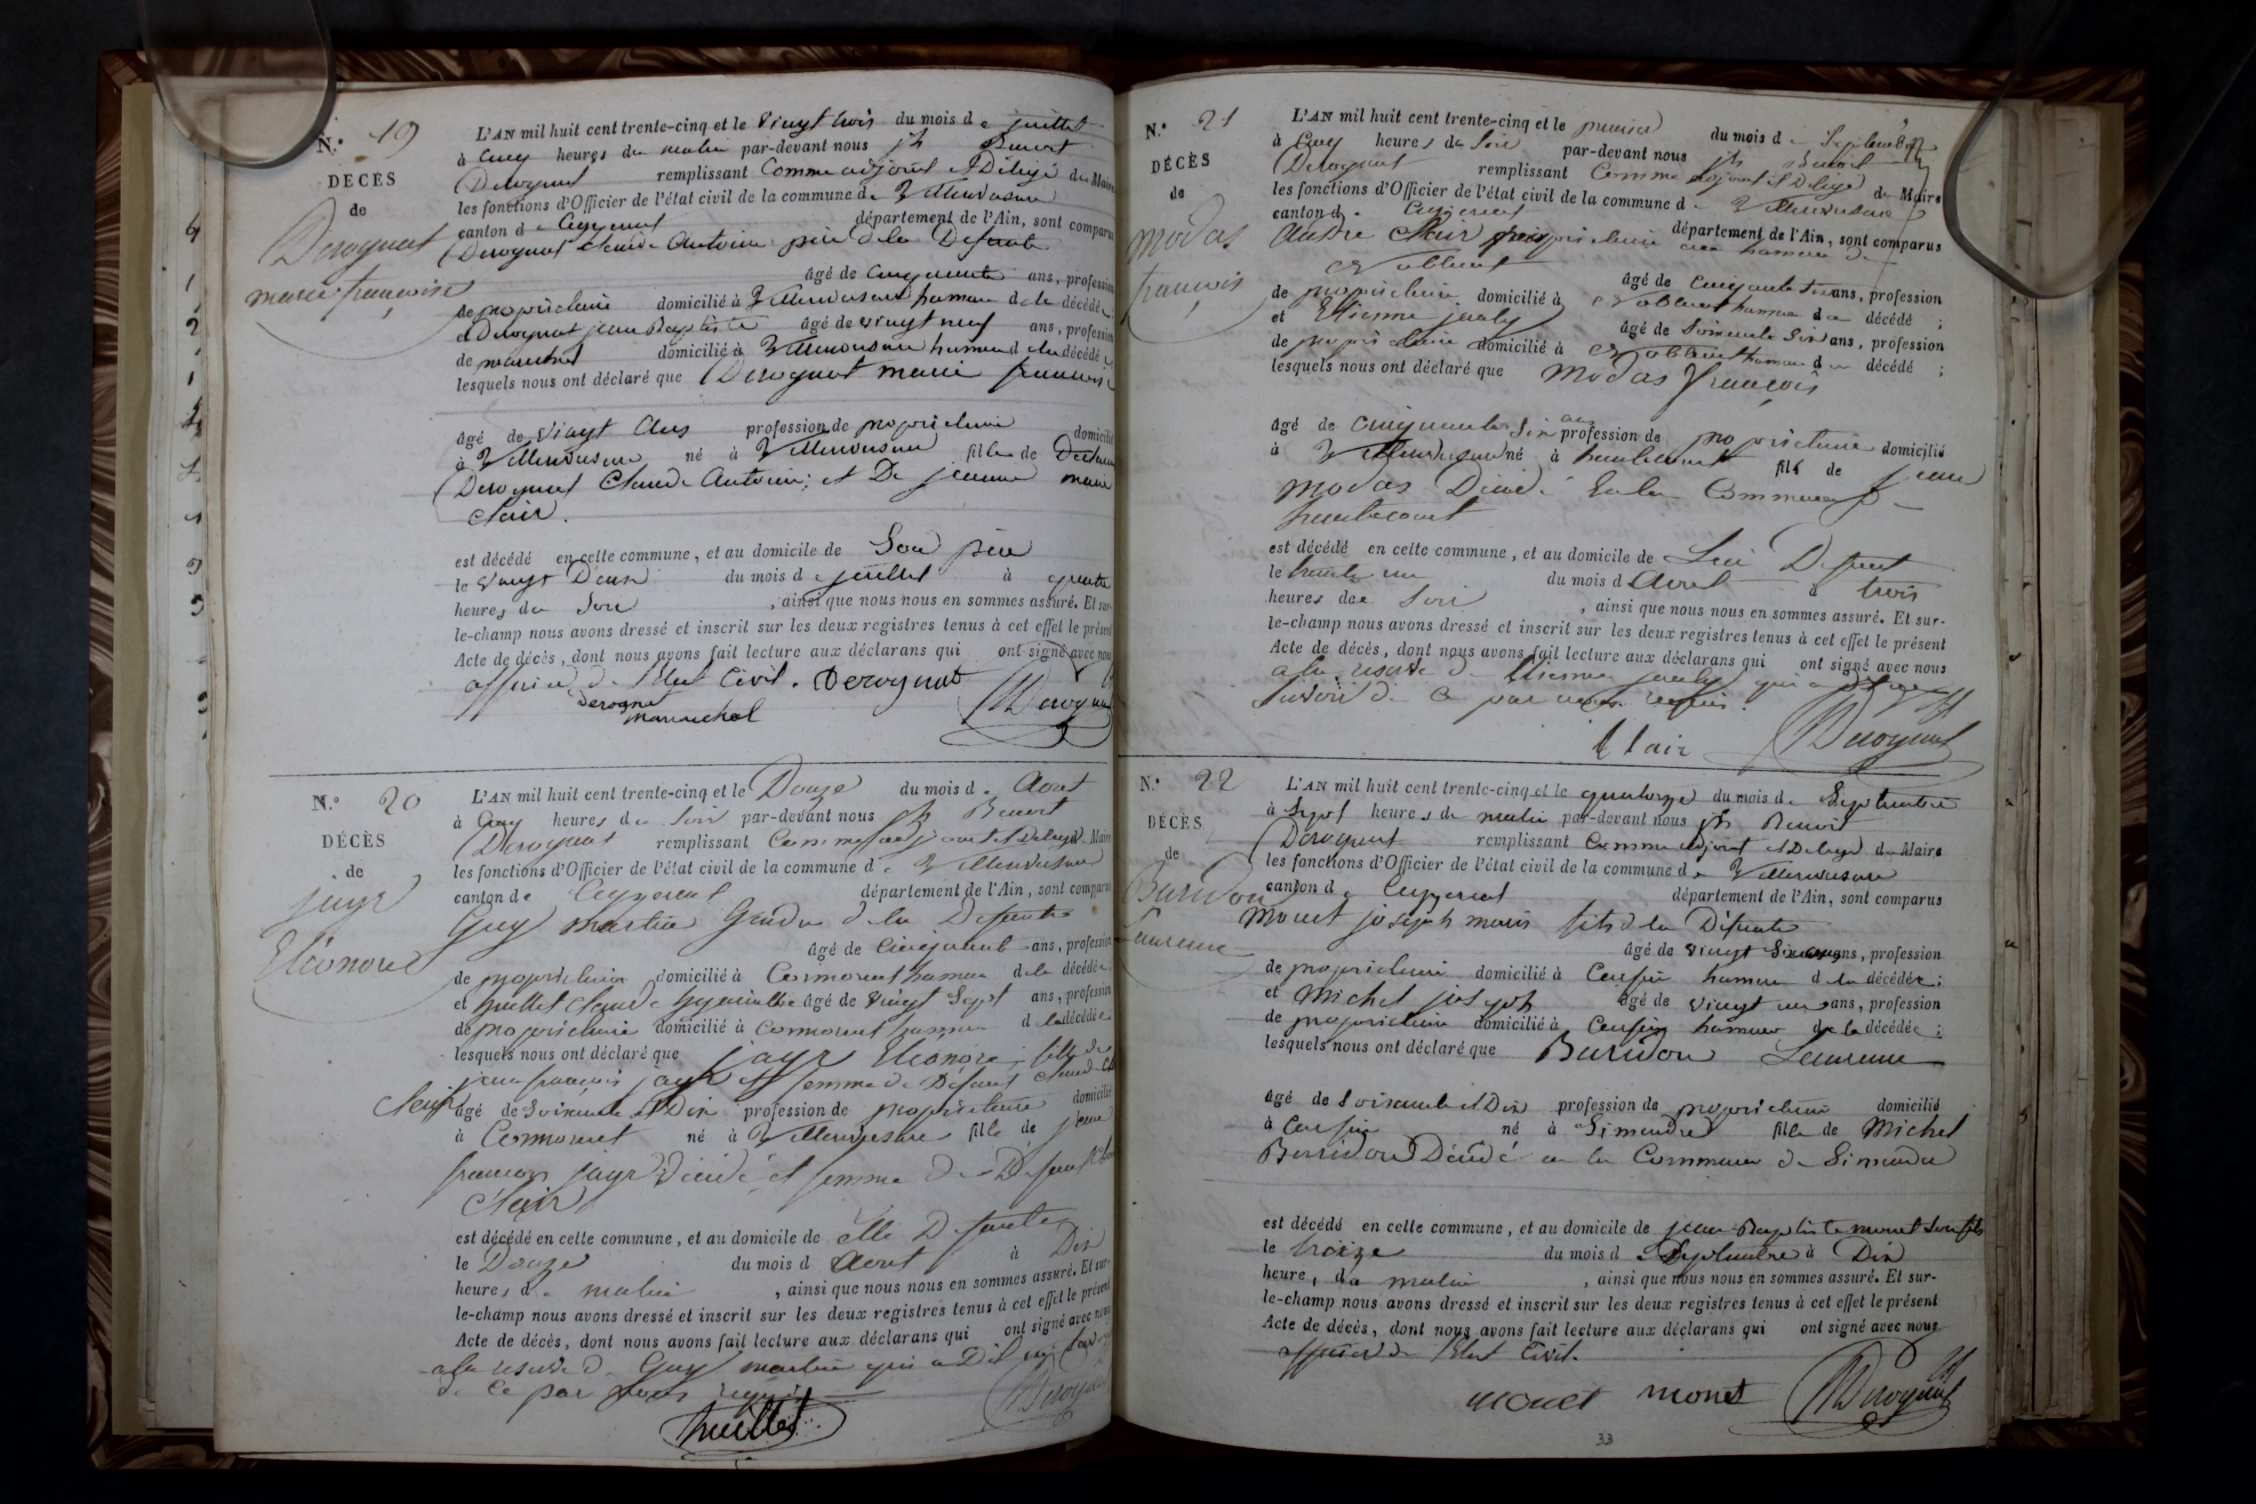 N.º 19
DÉCÈS
de
Derognat
marie françoise
L'AN mil huit cent trente-cinq et le vingt trois du mois de juillet
à cinq heures du matin par-devant nous jh Benoit
Derognat remplissant Comme adjoint et Délégé du Maire
les fonctions d'Officier de l'état civil de la commune de Villereversure
canton de Ceyzeriat département de l'Ain, sont comparus
Derognat Claude Antoine père de la Defunte
âgé de cinquante ans, profession
de propriétaire domicilié à Villereversure hameau de la décédée;
et Derognat jean Baptiste âgé de vingt neuf ans, profession
de marechal domicilié à Villereversure hameau de la décédée
lesquels nous ont déclaré que Derognat marie francoise
âgé de vingt ans profession de propriétaire domicilié
à Villereversure né à Villereversure fille de
Derognat Claude Antoine; et De jeanne marie
Clair.
est décédé en cette commune, et au domicile de Son père
le vingt Deux du mois de juillet à quatre
heures du Soir, ainsi que nous nous en sommes assuré. Et sur-
le-champ nous avons dressé et inscrit sur les deux registres tenus à cet effet le présent
Acte de décès, dont nous avons fait lecture aux déclarans qui ont signé avec nous
officier de l'Etat Civil. Derognat
marechal Derognat
N.º 20
DÉCÈS
de
jayr
Eléonore
L'AN mil huit cent trente-cinq et le Douze du mois d'Aout
à cinq heures du Soir par-devant nous jh Benoit
Derognat remplissant Comme adjoint et Delegé du Maire
les fonctions d'Officier de l'état civil de la commune de Villereversure
canton de Ceyzeriat département de l'Ain, sont comparus
Guy martin Gendre de la Defunte
âgé de cinquante ans, profession
de propriétaire domicilié à Cormorent hameau de la décédée
et huillet Claude hyacinthe âgé de vingt Sept ans, profession
de propriétaire domicilié à Cormorent hameau de la décédée
lesquels nous ont déclaré que jayr Eléonore; fille de
jean françois jayr et femme de Défunt Claude
Clair âgé de Soixante et Dix profession de propriétaire domicilié
à Cormorent né à Villereversure fille de jean
francois jayr Décédé et femme De Defunt
Clair
est décédé en cette commune, et au domicile de elle Defunte
le Douze du mois d Aout à Dix
heures du matin, ainsi que nous nous en sommes assuré. Et sur-
le-champ nous avons dressé et inscrit sur les deux registres tenus à cet effet le présent
Acte de décès, dont nous avons fait lecture aux déclarans qui ont signé avec nous
a la reserve de Guy martin qui a Dit ne Savoir
de Ce par nous requis
huillet Derognat
N.º 21
DÉCÈS
de
modas
françois
L'AN mil huit cent trente-cinq et le premier du mois de Septembre
à cinq heures du Soir par-devant nous jh Benoit
Derognat remplissant Comme adjoint et Delegé du Maire
les fonctions d'Officier de l'état civil de la commune de Villereversure
canton de Ceyzeriat département de l'Ain, sont comparus
Clair propriétaire au hameau de
âgé de cinquante ans, profession
de propriétaire domicilié à hameau du décédé;
et Etienne âgé de Soixante Six ans, profession
de propriétaire domicilié à hameau du décédé;
lesquels nous ont déclaré que Modas François
âgé de cinquante Six ans profession de propriétaire domicilié
à Villereversure né à hautecourt fils de jean
modas Décédé en la Commune de
hautecourt
est décédé en cette commune, et au domicile de Lui Defunt
le trente un du mois d Aout à trois
heures du Soir, ainsi que nous nous en sommes assuré. Et sur-
le-champ nous avons dressé et inscrit sur les deux registres tenus à cet effet le présent
Acte de décès, dont nous avons fait lecture aux déclarans qui ont signé avec nous
a la reserve de Etienne qui a
de Ce par nous requis.
Clair Derognat
N.º 22
DÉCÈS
de
Buridon
Laurence
L'AN mil huit cent trente-cinq et le quatorze du mois de Septembre
à Sept heures du matin par-devant nous jh Benoit
Derognat remplissant Comme adjoint et Delegé du Maire
les fonctions d'Officier de l'état civil de la commune de Villereversure
canton de Ceyzeriat département de l'Ain, sont comparus
Monet joseph marie fils de la Défunte
âgé de vingt ans, profession
de propriétaire domicilié à hameau de la décédée;
et Michel joseph âgé de vingt ans, profession
de propriétaire domicilié à hameau de la décédée;
lesquels nous ont déclaré que Buridon Laurence
âgé de Soixante et Dix profession de propriétaire domicilié
à né à Simandre fille de Michel
Buridon Décédé en la Commune de Simandre
est décédé en cette commune, et au domicile de jean Baptiste monet Son fils
le treize du mois de Septembre à Dix
heures du matin, ainsi que nous nous en sommes assuré. Et sur-
le-champ nous avons dressé et inscrit sur les deux registres tenus à cet effet le présent
Acte de décès, dont nous avons fait lecture aux déclarans qui ont signé avec nous
officier de l'Etat Civil.
monet Derognat
33